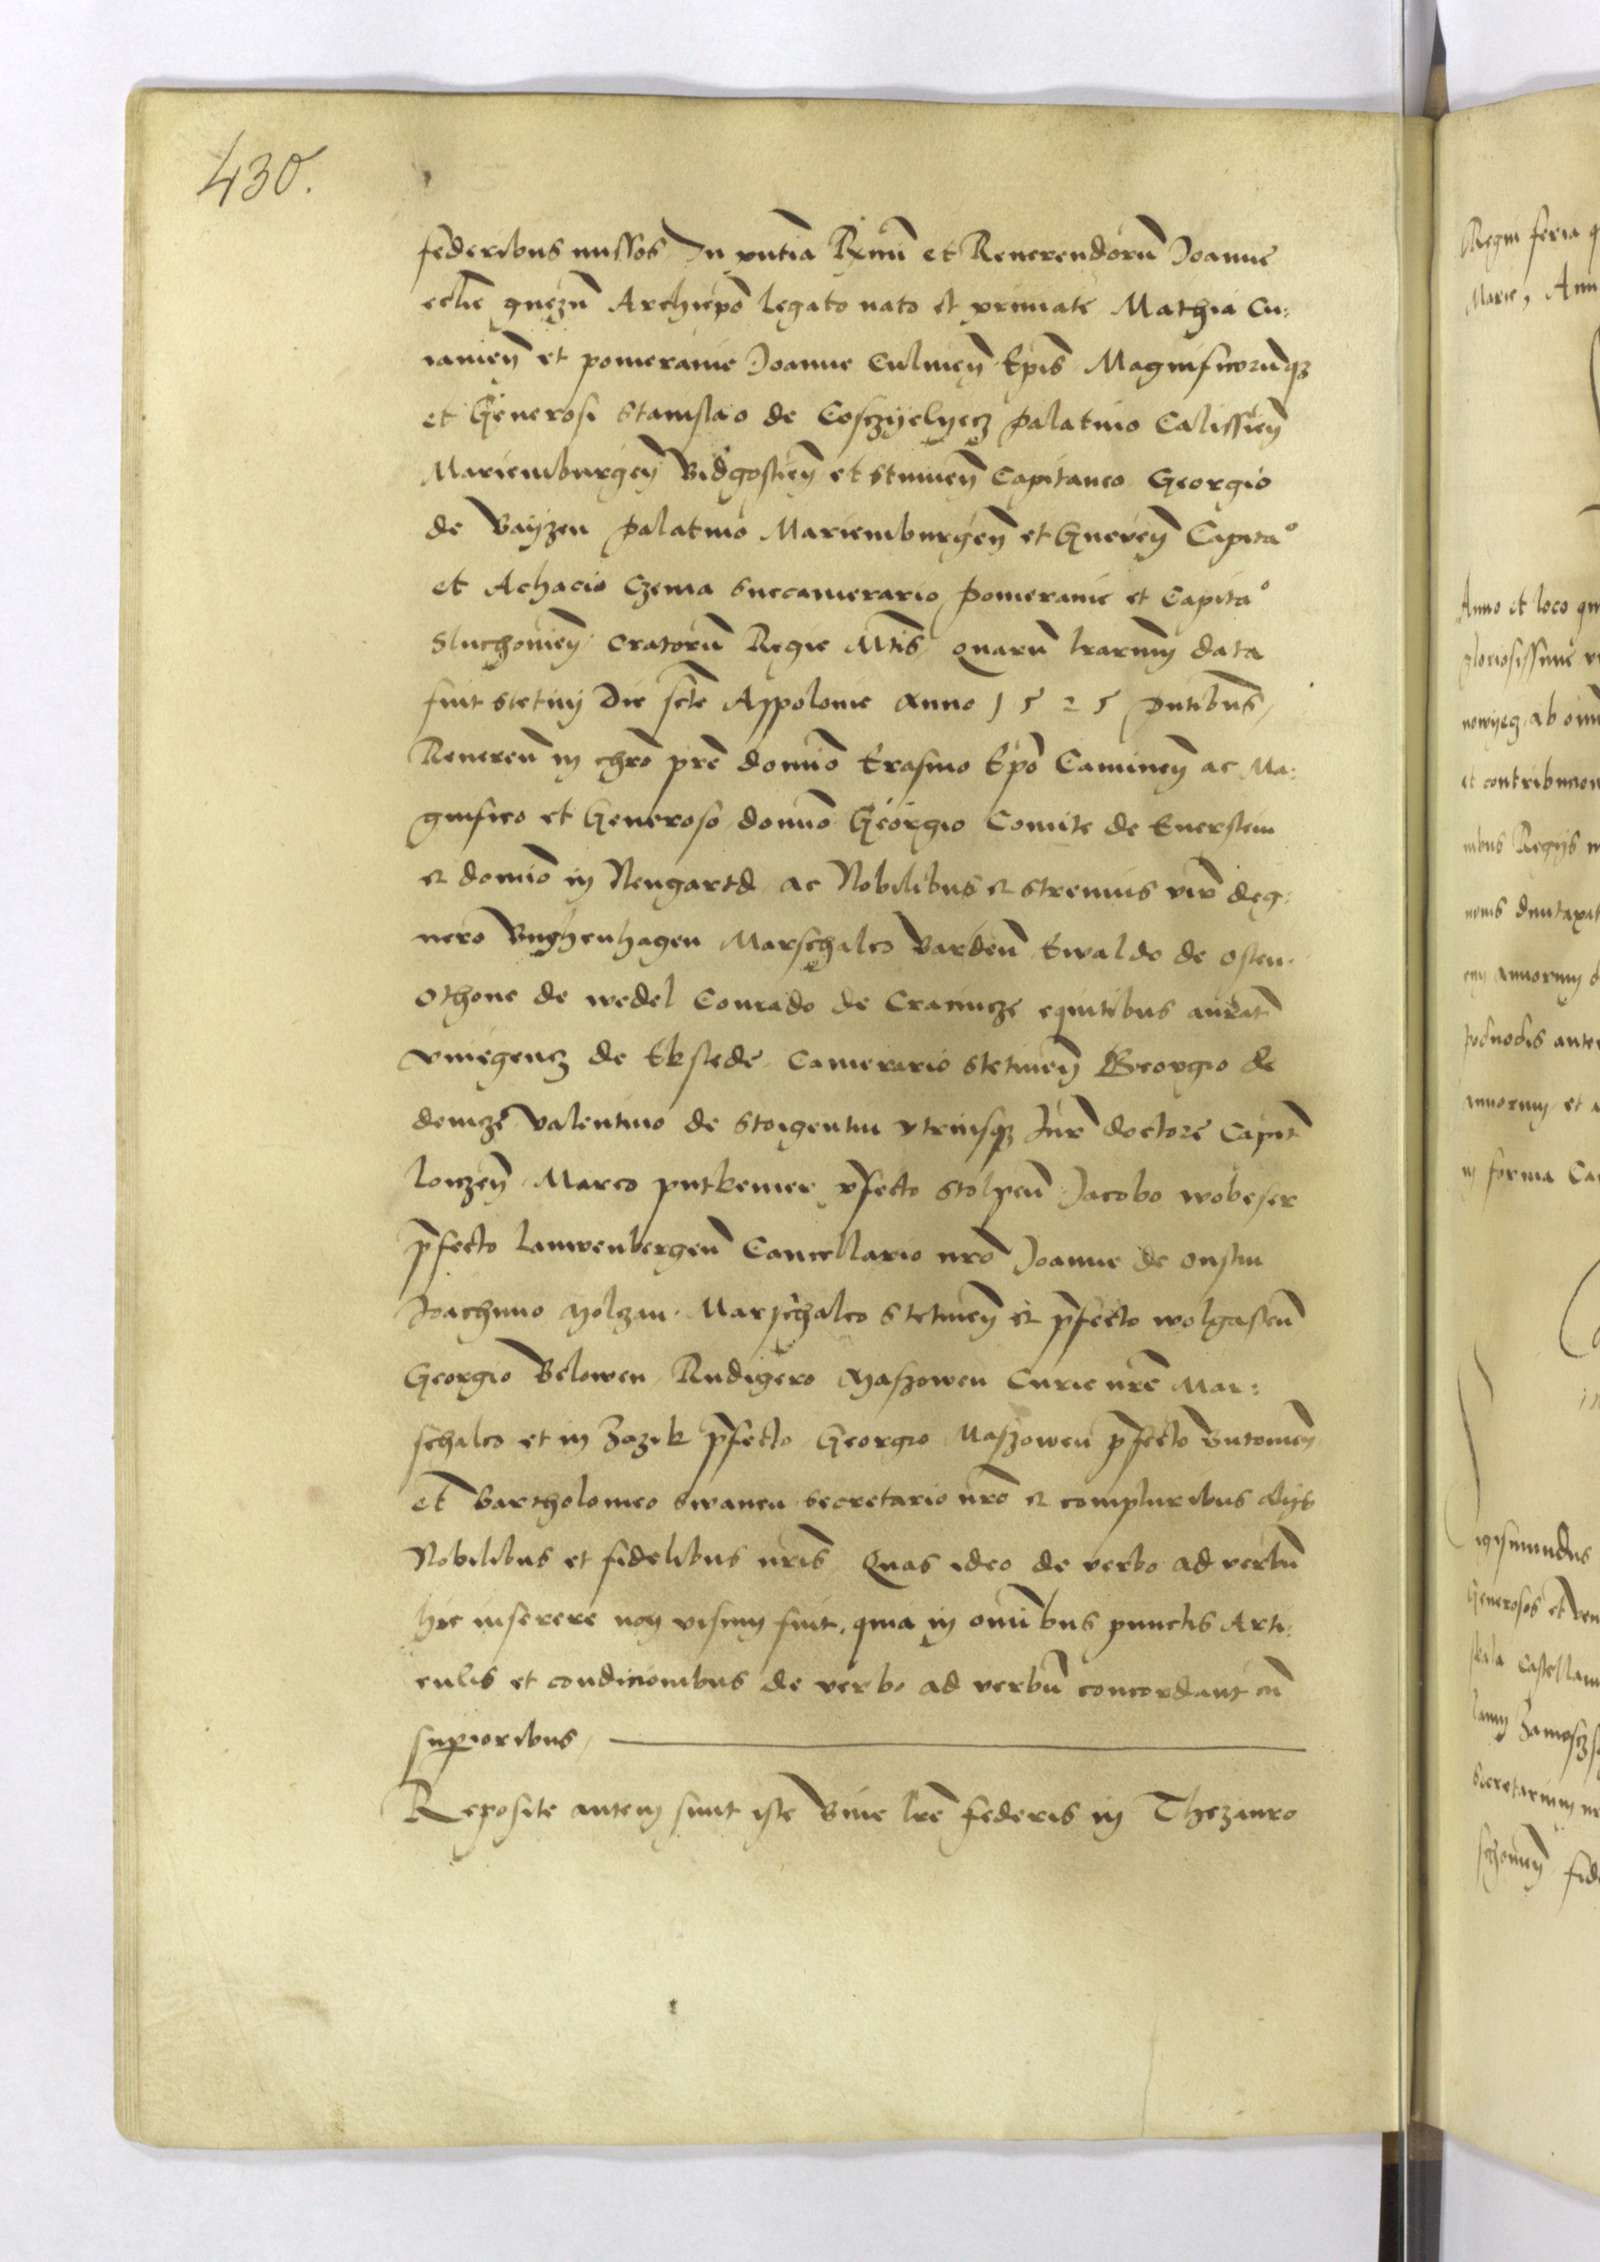 430.
federibus missos In pntia Rxmi et Reuerendorũ Joanne
eclie gnezñ Archiepo legato nato et primate Mathia Cu:
iauien et pomeranie Joanne Culmen Epis Magnificorũqz
et Generosi Stanislao de Coszyelyecz palatino Calissien
Mariemburgen Bidgostien et Stumen Capitaneo Georgio
de Bayzen palatino Mariemburgen et Gneuen Capitao
et Achacio Czema succamerario pomeranie et Capitao
Sluchouien oratorũ Regie Mtis quarũ lrarum data
fuit Stetini Die scte Appolonie Anno 1525 pntibus
Reueren in chro pre domio Erasmo Epo Caminen ac Ma:
gnifico et Generoso domio Georgio Comite de Euerstein
et domio in Neugartd ac Nobilibus et strenuis viris deg:
nero Bughenhagen Marschalco Barden Ewaldo de Osten
Othone de wedel Conrado de Cracuicze equitibus aurat
vinegencz de Ekstede Camerario Stetinen Georgio de
deuicze Valentino de Stoigentin vtriusqz Jur doctore Capit
loiczen Marco putkemer pfecto Stolpen Jacobo wobeser
pfecto lauwenbergen Cancellario nro Joanne de Onstin
Joachimo Molczan Marschalco Stetinen et pfecto wolgasten
Georgio Belowen Rudigero Maszowen Curie nre Mar:
schalco et in Zazik pfecto Georgio Maszowen pfecto Butouien
et Bartholomeo Swanen secretario nro et compluribus alijs
Nobilibus et fidelibus nris Quas ideo de verbo ad verbũ
hic inserere non visum fuit, quia in omibus punctis Arti:
culis et condicionibus de verbo ad verbũ concordant cũ
supioribus
Reposite autem sunt iste bine lre federis in Thezauro
Regni feria
Marie, Ann
Anno et loco
gloriosissime
ab
et contribucion
Regijs
annorum
annorum et
in forma
Generosos et
Castellan
Secretarium